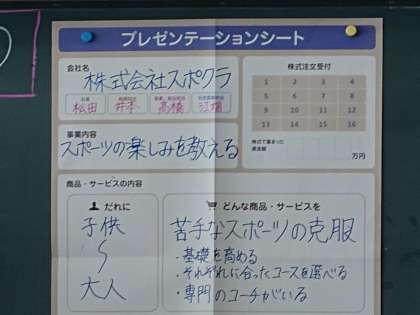 プレゼンテーションシート
会社名
株式会社スポクラ
社長
松田
井本
高橋
江畑
株式注文受付
1 2 3 4
5 6 7 8
9 10 11 12
13 14 15 16
株式で集まった
資金額
万円
事業内容
スポーツの楽しみを教える
商品・サービスの内容
だれに
子供
〜
大人
どんな商品・サービスを
苦手なスポーツの克服
・基礎を高める
・それぞれに合ったコースを選べる
・専門のコーチがいる